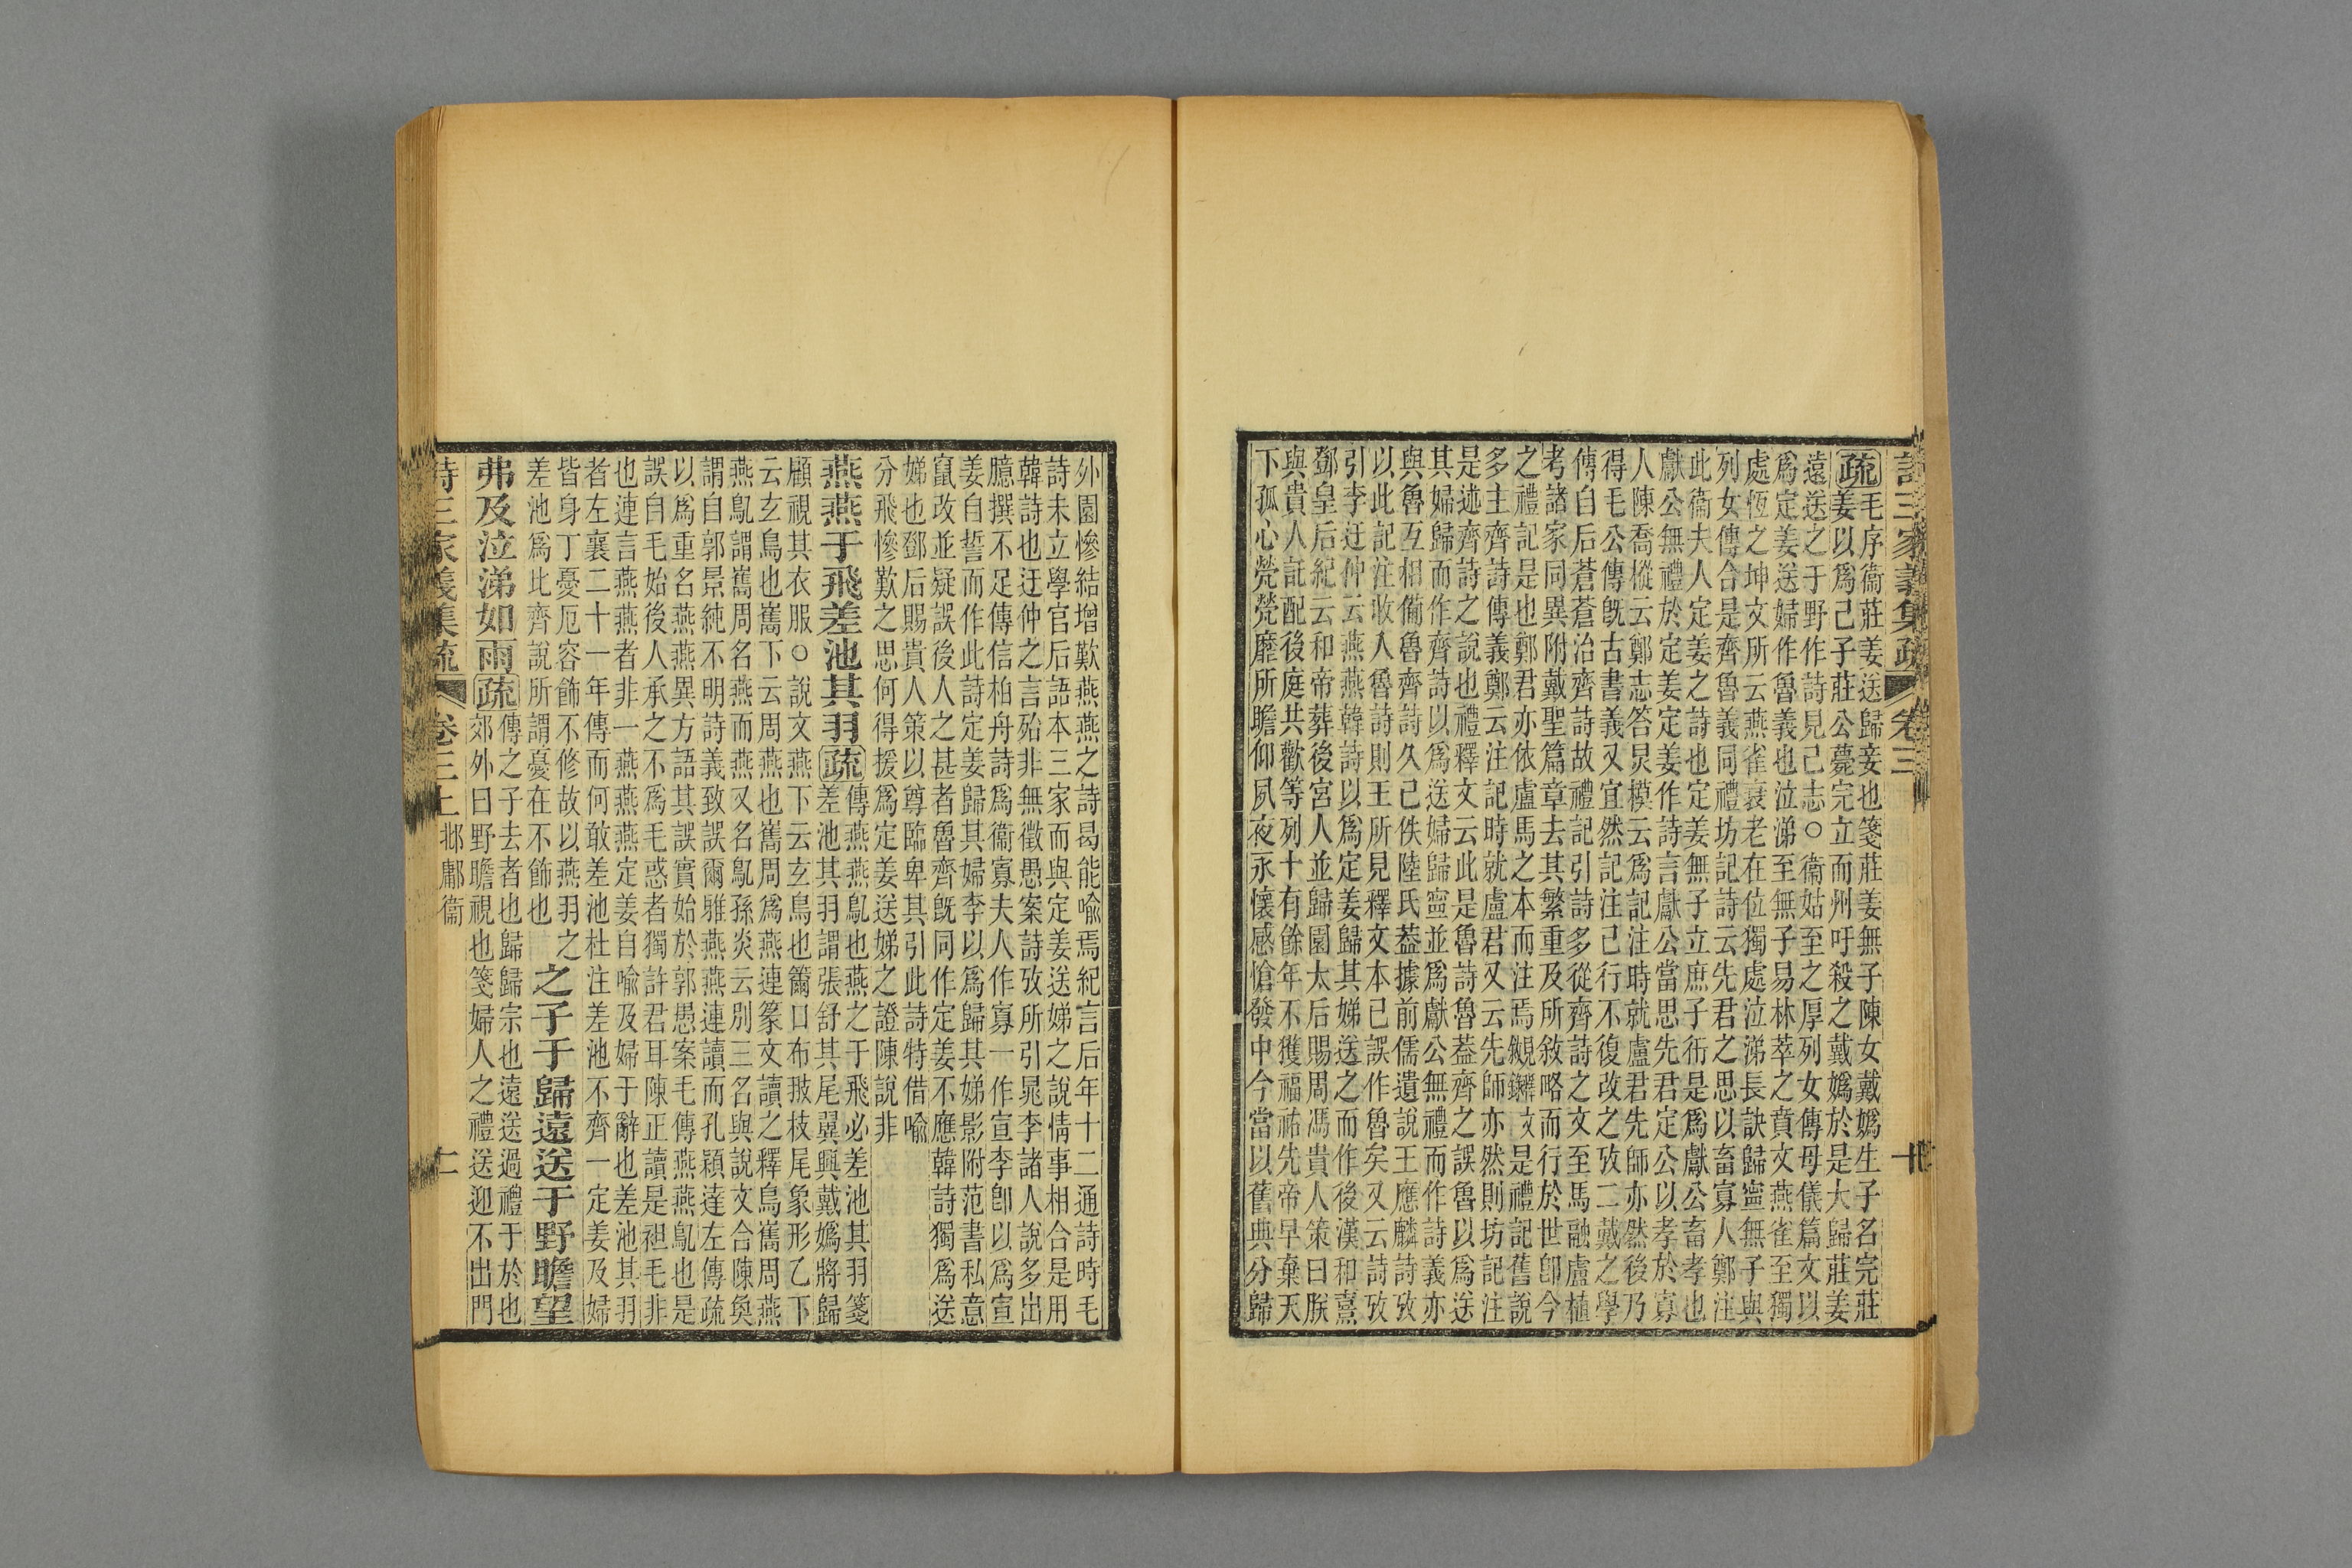 詩三家義集疏 卷三 十
疏毛序衞莊姜送歸妾也箋莊姜無子陳女戴嬀生子名完莊
姜以爲己子莊公薨完立而州吁殺之戴嬀於是大歸莊姜
遠送之于野作詩見己志○衞姑至之厚列女傳母儀篇文以
爲定姜送婦作魯義也泣涕至無子易林萃之賁文燕雀至獨
處恆之坤文所云燕雀衰老在位獨處泣涕長訣歸寧無子與
列女傳合是齊魯義同禮坊記詩云先君之思以畜寡人鄭注
此衞夫人定姜之詩也定姜無子立庶子衎是爲獻公畜孝也
獻公無禮於定姜定姜作詩言獻公當思先君定公以孝於寡
人陳喬樅云鄭志答炅模云爲記注時就盧君先師亦然後乃
得毛公傳旣古書義又宜然記注已行不復改之攷二戴之學
傳自后蒼蒼治齊詩故禮記引詩多從齊詩之文至馬融盧植
考諸家同異附戴聖篇章去其繁重及所敘略而行於世卽今
之禮記是也鄭君亦依盧馬之本而注焉是禮記舊說
多主齊詩傳義鄭云注記時就盧君又云先師亦然則坊記注
是述齊詩之說也禮釋文云此是魯詩魯葢齊之誤魯以爲送
其婦歸而作齊詩以爲送婦歸寧並爲獻公無禮而作詩義亦
與魯互相備魯齊詩久已佚陸氏葢據前儒遺說王應麟詩攷
以此記注收入魯詩則王所見釋文本已誤作魯矣又云詩攷
引李迂仲云燕燕韓詩以爲定姜歸其娣送之而作後漢和熹
鄧皇后紀云和帝葬後宮人並歸園太后賜周馮貴人策曰朕
與貴人託配後庭共歡等列十有餘年不獲福祐先帝早棄天
下孤心煢煢靡所瞻仰夙夜永懷感愴發中今當以舊典分歸
外園慘結增歎燕燕之詩曷能喻焉紀言后年十二通詩時毛
詩未立學官后語本三家而與定姜送娣之說情事相合是用
韓詩也迂仲之言殆非無徵愚案詩攷所引晁李諸人說多出
臆撰不足傳信柏舟詩爲衞寡夫人作寡一作宣李卽以爲宣
姜自誓而作此詩定姜歸其婦李以爲歸其娣影附范書私意
竄改並疑誤後人之甚者魯齊旣同作定姜不應韓詩獨爲送
娣也鄧后賜貴人策以尊臨卑其引此詩特借喻
分飛慘歎之思何得援爲定姜送娣之證陳說非
燕燕于飛差池其羽疏傳燕燕鳦也燕之于飛必差池其羽箋
差池其羽謂張舒其尾翼興戴嬀將歸
顧視其衣服○說文燕下云玄鳥也籋口布翄枝尾象形乙下
云玄鳥也巂下云周燕也巂周爲燕連篆文讀之釋鳥巂周燕
燕鳦謂巂周名燕而燕又名鳦孫炎云別三名與說文合陳奐
謂自郭景純不明詩義致誤爾雅燕燕連讀而孔穎達左傳疏
以爲重名燕燕異方語其誤實始於郭愚案毛傳燕燕鳦也是
誤自毛始後人承之不爲毛惑者獨許君耳陳正讀是袒毛非
也連言燕燕者非一燕燕燕定姜自喻及婦于辭也差池其羽
者左襄二十一年傳而何敢差池杜注差池不齊一定姜及婦
皆身丁憂厄容飾不修故以燕羽之
差池爲比齊說所謂憂在不飾也
之子于歸遠送于野瞻望
弗及泣涕如雨疏傳之子去者也歸歸宗也遠送過禮于於也
郊外曰野瞻視也箋婦人之禮送迎不出門
詩三家義集疏 卷三上 邶鄘衞 十二